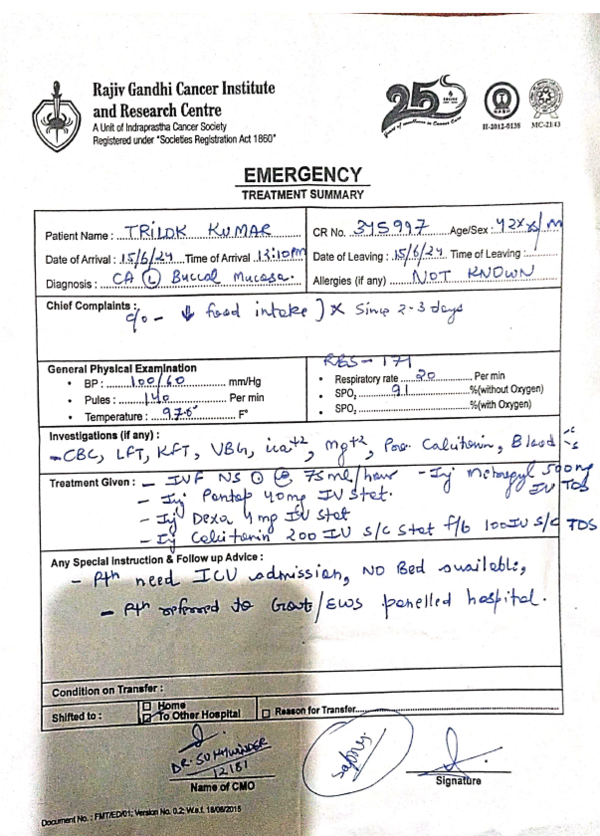 Rajiv Gandhi Cancer Institute
and Research Centre
A Unit of Indraprastha Cancer Society
Registered under "Societies Registration Act 1860"
25
Years of excellence in Cancer Care
H-2012-0135
MC-2143
EMERGENCY
TREATMENT SUMMARY
Patient Name : TRILOK KUMAR
CR No. 315997 Age/Sex : 42 /M
Date of Arrival : 15/6/24 Time of Arrival 13:10pm
Date of Leaving : 15/6/24 Time of Leaving :
Diagnosis : CA (L) Buccal Mucosa.
Allergies (if any) NOT KNOWN
Chief Complaints :
c/o - ↓ food intake } x since 2-3 days
General Physical Examination
• BP : 100/60 mm/Hg
• Pules : 140 Per min
• Temperature : 97.8° F°
RBS - 171
• Respiratory rate 20 Per min
• SPO2 91 %(without Oxygen)
• SPO2 %(with Oxygen)
Investigations (if any) :
- CBC, LFT, KFT, VBG, ica+2, mg+2, Calcitonin, Blood c/s
Treatment Given : - IVF NS @ 75ml/hour - Inj Metrogyl 500mg IV TDS
- Inj Pantop 40mg IV stat.
- Inj Dexa 4mg IV stat
- Inj Calcitonin 200 IU s/c stat f/b 100IU s/c TDS
Any Special Instruction & Follow up Advice :
- Pth need ICU admission, NO Bed available,
- Pth referred to Govt/EWS panelled hospital.
Condition on Transfer :
Shifted to :
Home
To Other Hospital
Reason for Transfer
DR. SUKHWINDER
12181
Name of CMO
Signature
Document No. : FMT/ED/01; Version No. 0.2; W.e.f. 18/06/2015